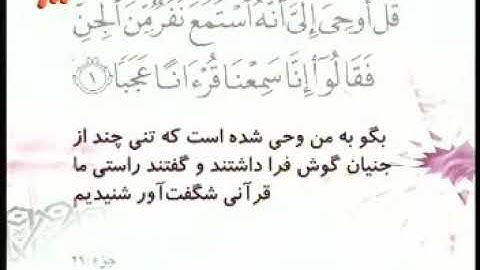 قُلْ أُوحِيَ إِلَيَّ أَنَّهُ ٱسْتَمَعَ نَفَرٌ مِّنَ ٱلْجِنِّ
فَقَالُوٓا۟ إِنَّا سَمِعْنَا قُرْءَانًا عَجَبًا ١
بگو به من وحی شده است که تنی چند از
جنیان گوش فرا داشتند و گفتند راستی ما
قرآنی شگفت‌آور شنیدیم
جزء ۲۹: